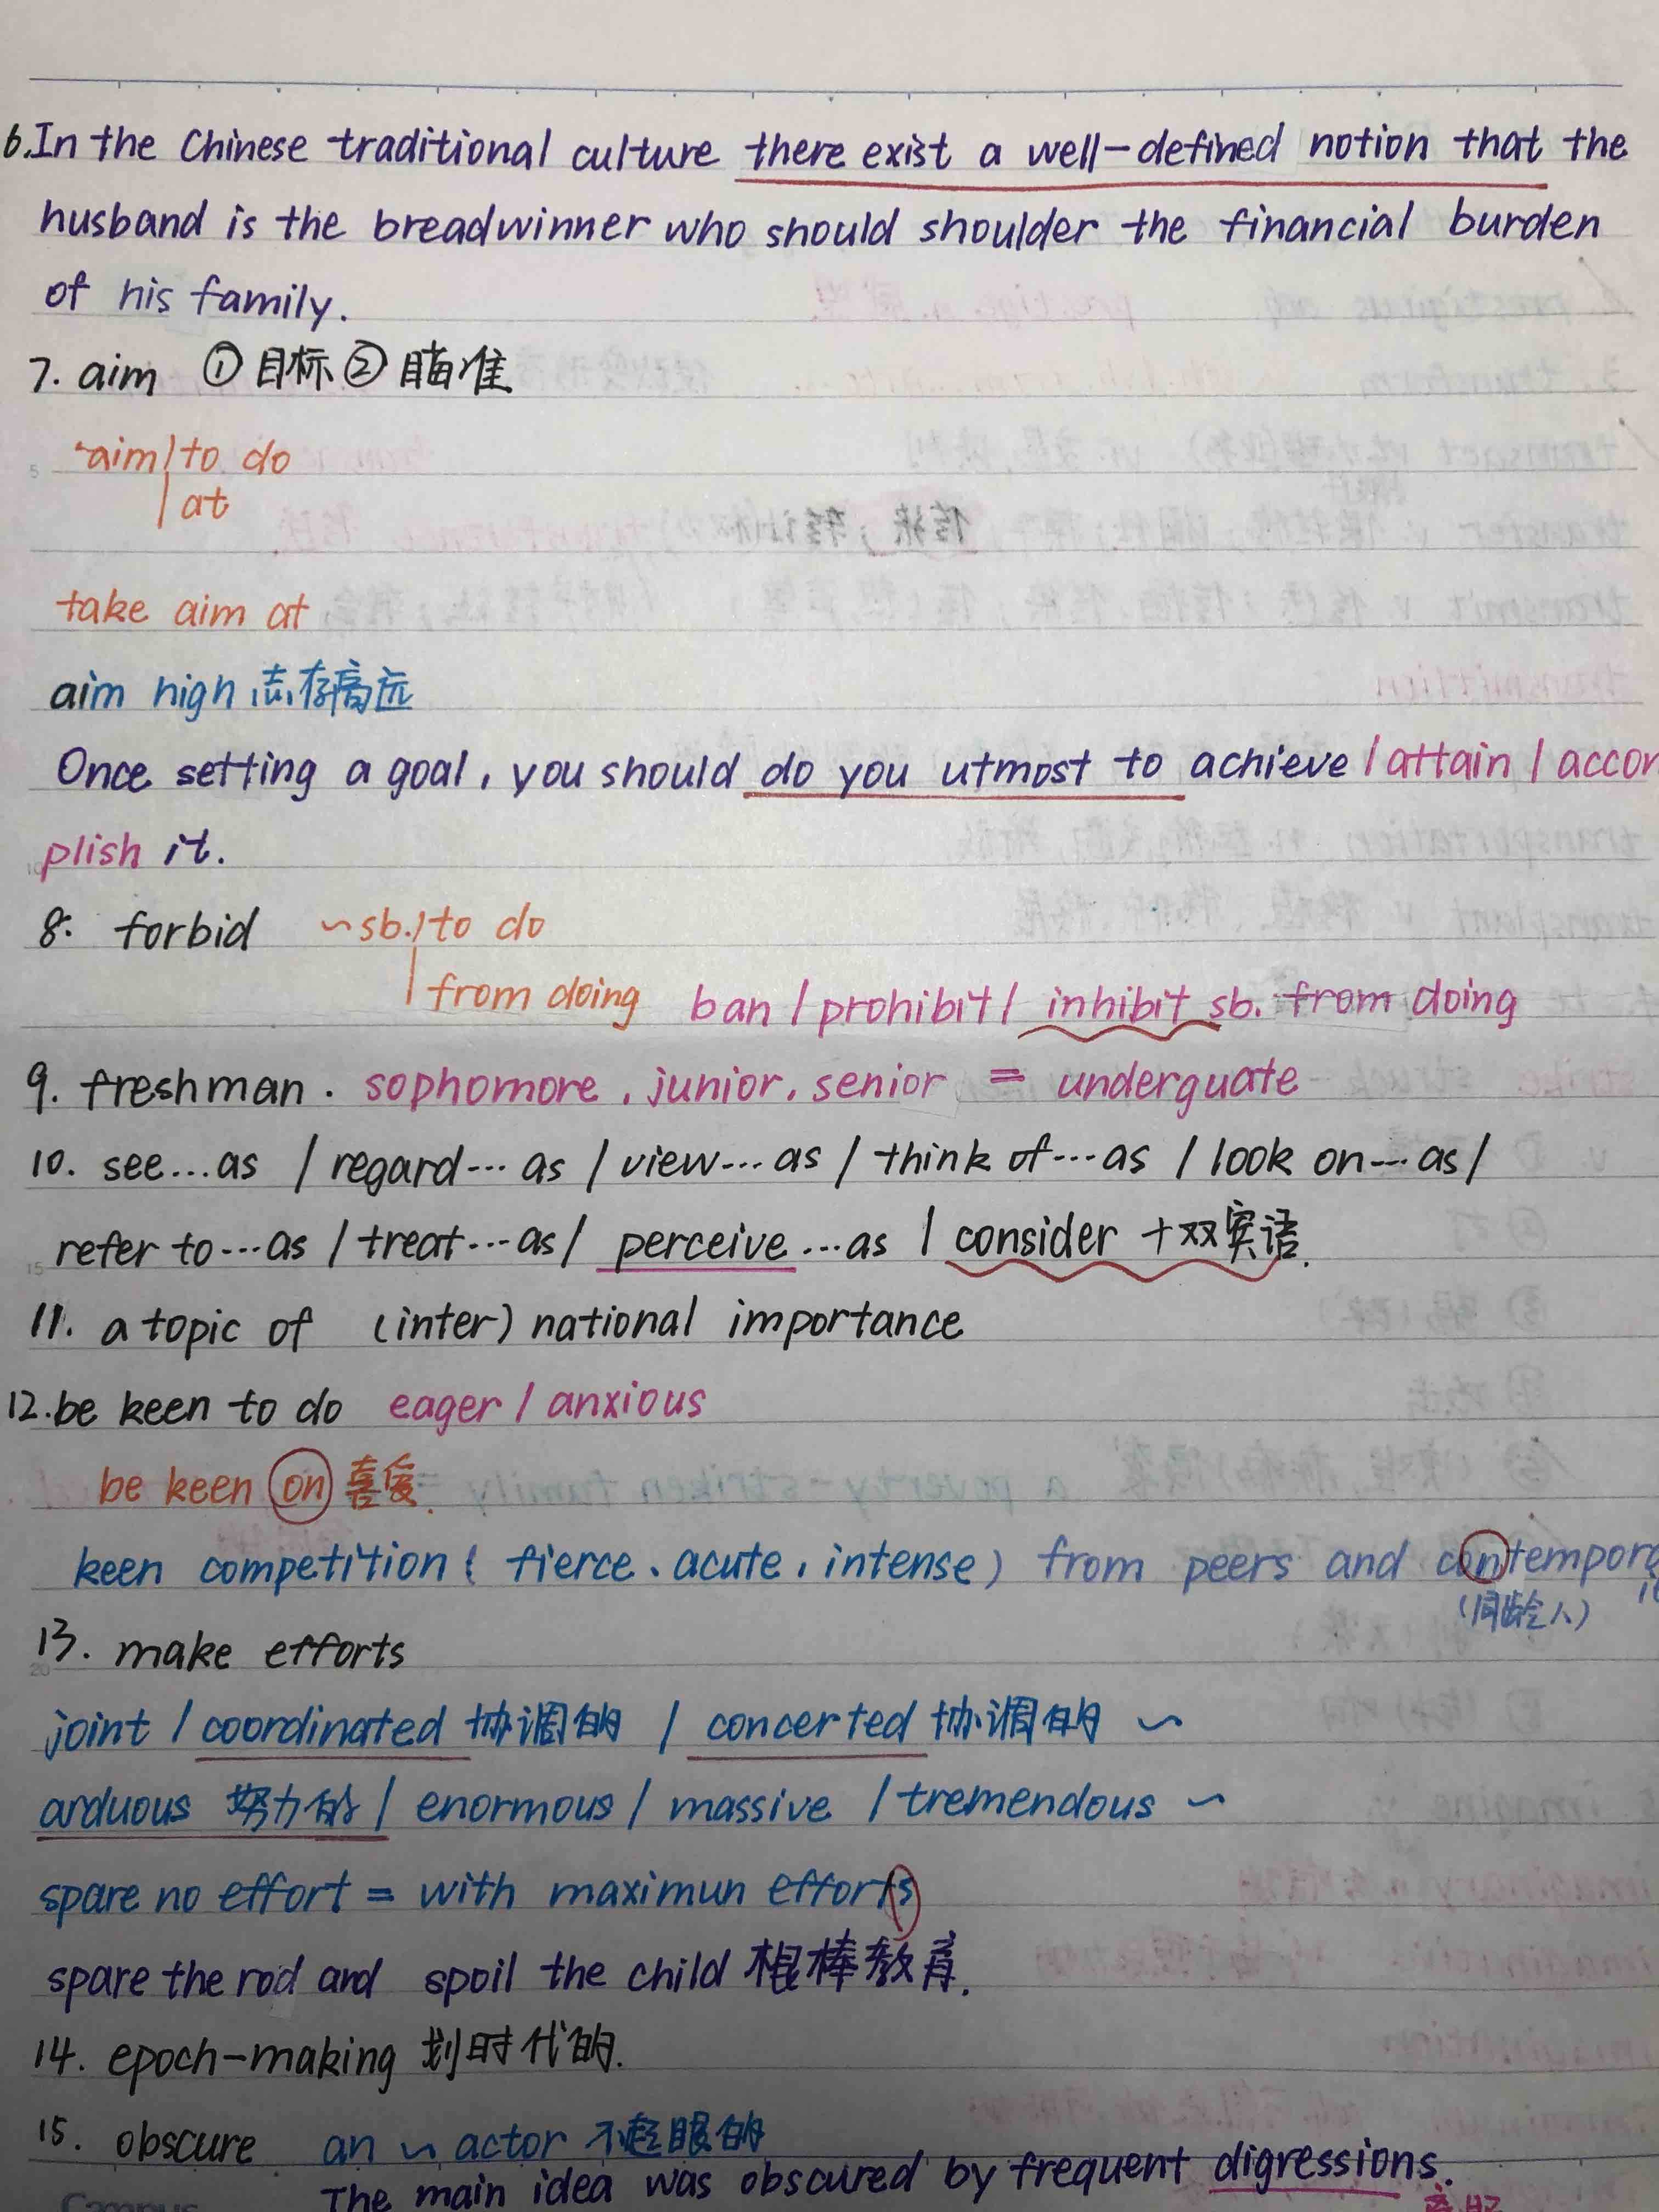 6.In the Chinese traditional culture there exist a well-defined notion that the
husband is the breadwinner who should shoulder the financial burden
of his family.
7. aim ①目标②瞄准
~aim to do
at
take aim at
aim high 志存高远
Once setting a goal, you should do you utmost to achieve / attain / accom
plish it.
8. forbid ~sb. to do
from doing ban / prohibit / inhibit sb. from doing
9. freshman. sophomore, junior, senior = underguate
10. see...as / regard...as / view...as / think of...as / look on...as /
refer to...as / treat...as / perceive...as / consider +双宾语.
11. a topic of (inter) national importance
12.be keen to do eager / anxious
be keen on 喜爱.
keen competition ( fierce、acute, intense) from peers and contempora
(同龄人)
13. make efforts
joint / coordinated 协调的 / concerted 协调的 ~
arduous 努力的 / enormous / massive / tremendous ~
spare no effort = with maximun efforts
spare the rod and spoil the child 棍棒教育.
14. epoch-making 划时代的.
15. obscure an ~ actor 不起眼的
The main idea was obscured by frequent digressions.
Campus